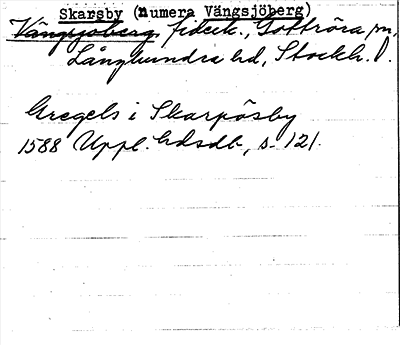 Skarsby (numera Vängsjöberg)
Vängsjöberg fideik., Gottröra sn,
Långhundra hd, Stockh. l.
Gregels i Skarpåsby
1588 Uppl. hdsdb, s. 121.